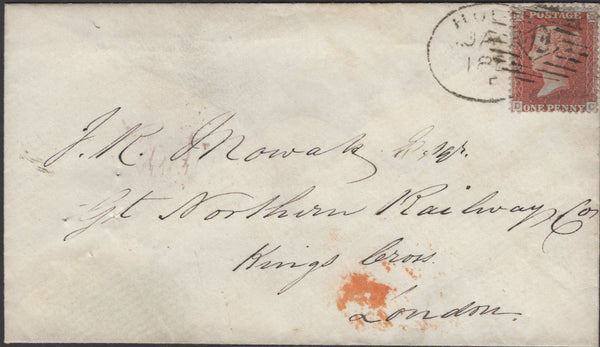 POSTAGE
ONE PENNY
J. R. Mowatt Esqr.
Gt Northern Railway Co
Kings Cross
London.